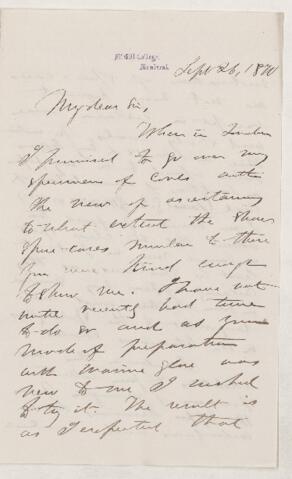 McGill College,
Montreal.
Sept 26, 1870
My dear Sir,
When in London
I promised to go over my
specimens of Coals with
the view of ascertaining
to what extent the
spore-cases similar to those
you were kind enough
to show me. I have not
until recently had time
to do so and as your
mode of preparation
with marine glue was
new to me I wished
to try it. The result is
as I expected that